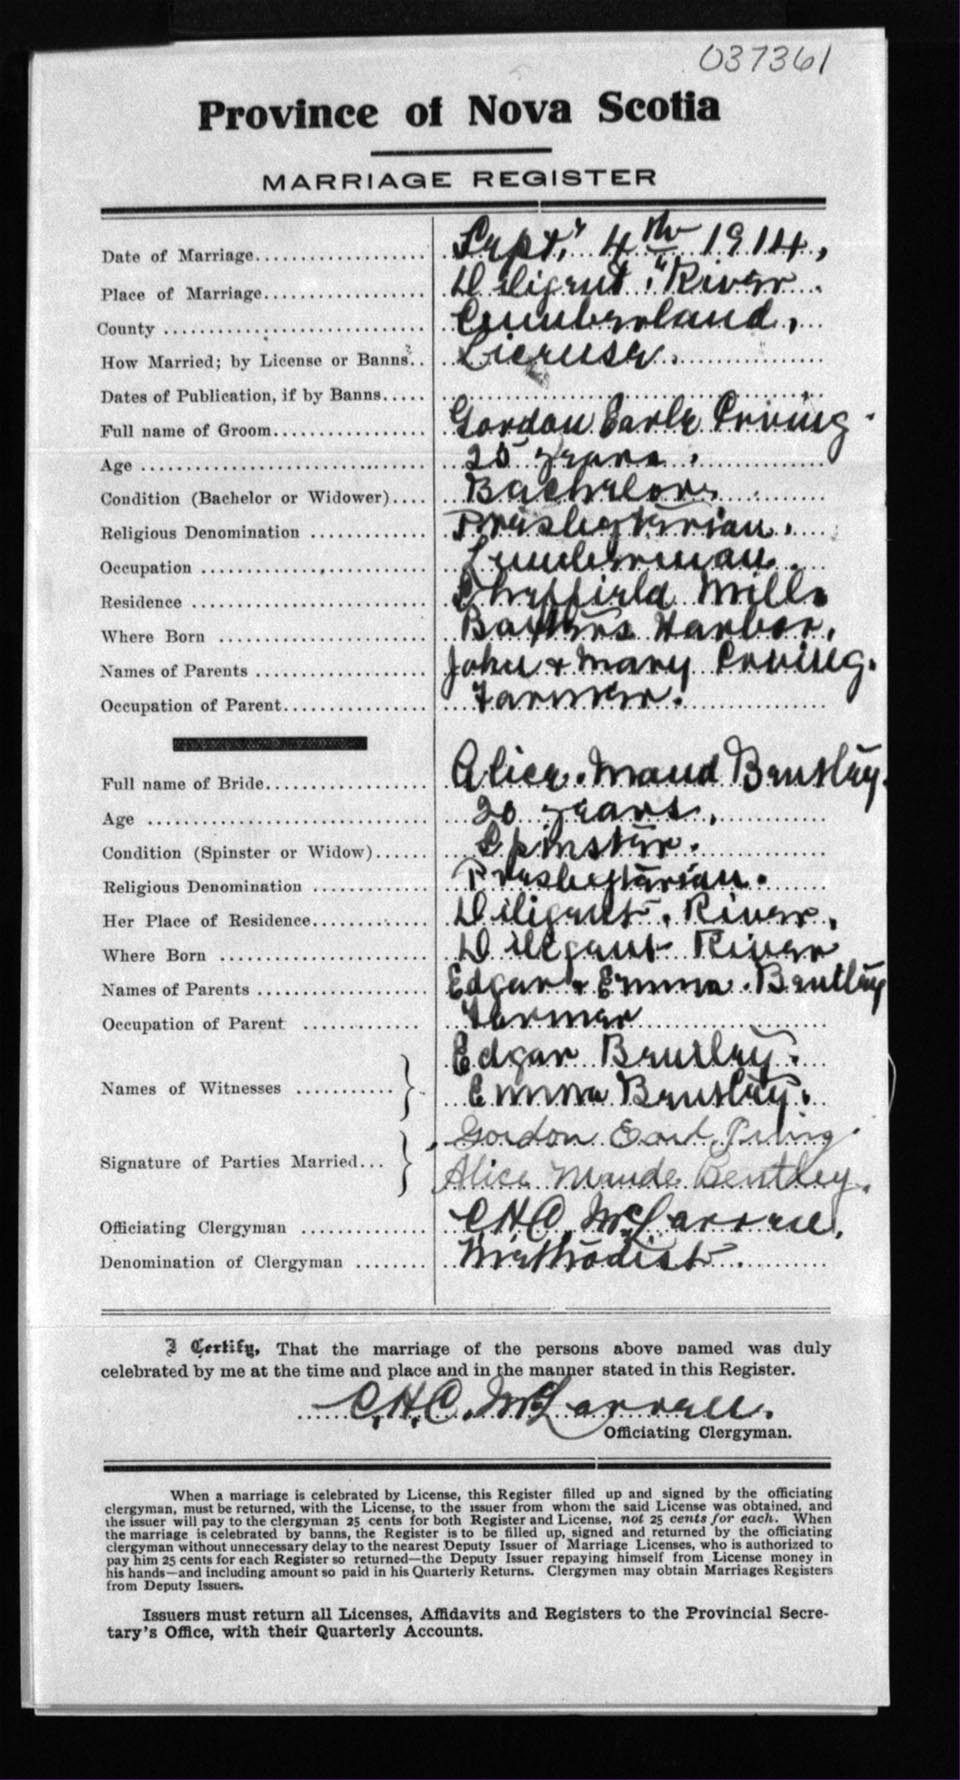 037361
Province of Nova Scotia
MARRIAGE REGISTER
Date of Marriage.................. Sept, 4th 1914,
Place of Marriage................. Diligent River.
County ........................... Cumberland,
How Married; by License or Banns.. License.
Dates of Publication, if by Banns.....
Full name of Groom................ Gordon Earle Irving
Age .............................. 25 years.
Condition (Bachelor or Widower).... Bachelor.
Religious Denomination ............ Presbyterian.
Occupation ....................... Lumberman.
Residence ........................ Sheffield Mills
Where Born ....................... Baxters Harbor,
Names of Parents ................. John & Mary Irving.
Occupation of Parent.............. Farmer.
Full name of Bride................ Alice. Maud Bentley.
Age .............................. 20 years,
Condition (Spinster or Widow)...... Spinster.
Religious Denomination ............ Presbyterian.
Her Place of Residence............ Diligent. River,
Where Born ....................... Diligent River
Names of Parents ................. Edgar & Emma. Bentley
Occupation of Parent ............. Farmer
Edgar Bentley.
Names of Witnesses ............ Emma Bentley.
Gordon Earl Irving.
Signature of Parties Married... Alice Maude Bentley.
Officiating Clergyman ............. C H C McLarren.
Denomination of Clergyman ........ Methodist.
I Certify, That the marriage of the persons above named was duly
celebrated by me at the time and place and in the manner stated in this Register.
C. H. C. McLarren.
Officiating Clergyman.
When a marriage is celebrated by License, this Register filled up and signed by the officiating
clergyman, must be returned, with the License, to the issuer from whom the said License was obtained, and
the issuer will pay to the clergyman 25 cents for both Register and License, not 25 cents for each. When
the marriage is celebrated by banns, the Register is to be filled up, signed and returned by the officiating
clergyman without unnecessary delay to the nearest Deputy Issuer of Marriage Licenses, who is authorized to
pay him 25 cents for each Register so returned—the Deputy Issuer repaying himself from License money in
his hands—and including amount so paid in his Quarterly Returns. Clergymen may obtain Marriages Registers
from Deputy Issuers.
Issuers must return all Licenses, Affidavits and Registers to the Provincial Secre-
tary's Office, with their Quarterly Accounts.